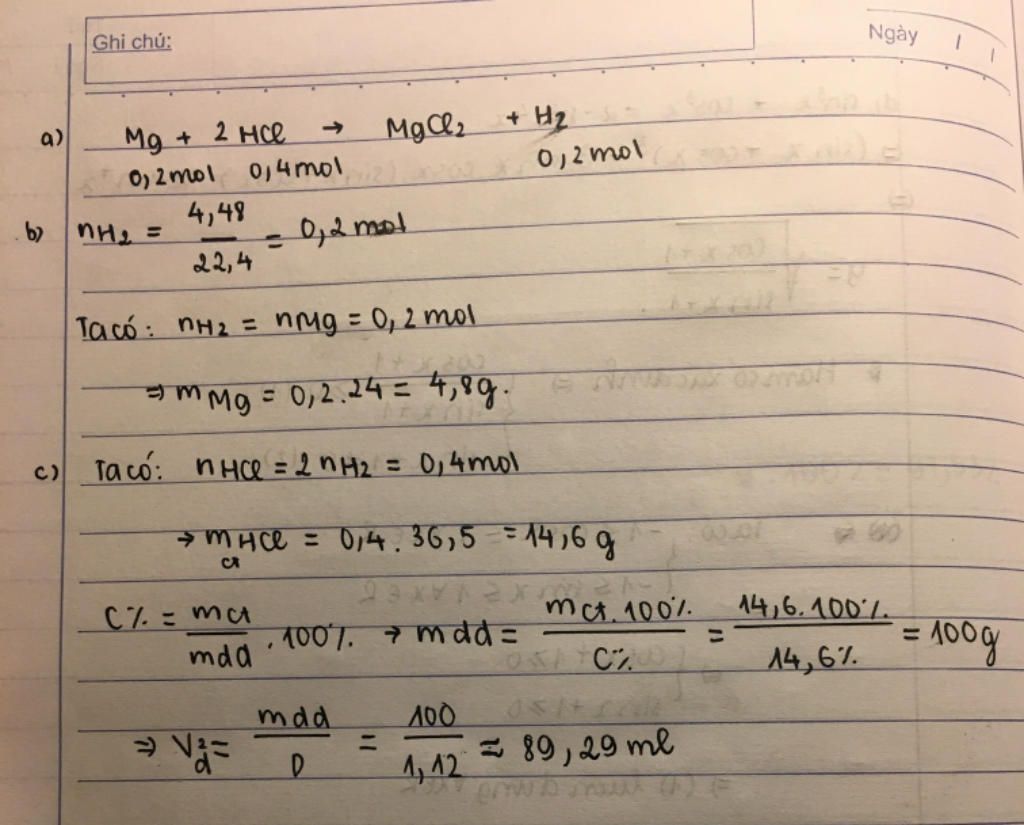 Ghi chú:
Ngày / /
a) Mg + 2 HCl → MgCl2 + H2
0,2mol 0,4mol 0,2mol
b) nH2 = 4,48 / 22,4 = 0,2 mol
Ta có: nH2 = nMg = 0,2 mol
⇒ mMg = 0,2.24 = 4,8g.
c) Ta có: nHCl = 2nH2 = 0,4mol
→ mHCl = 0,4. 36,5 = 14,6 g
ct
C% = mct / mdd . 100% → mdd = mct. 100% / C% = 14,6. 100% / 14,6% = 100g
⇒ Vd² = mdd / D = 100 / 1,12 = 89,29 ml